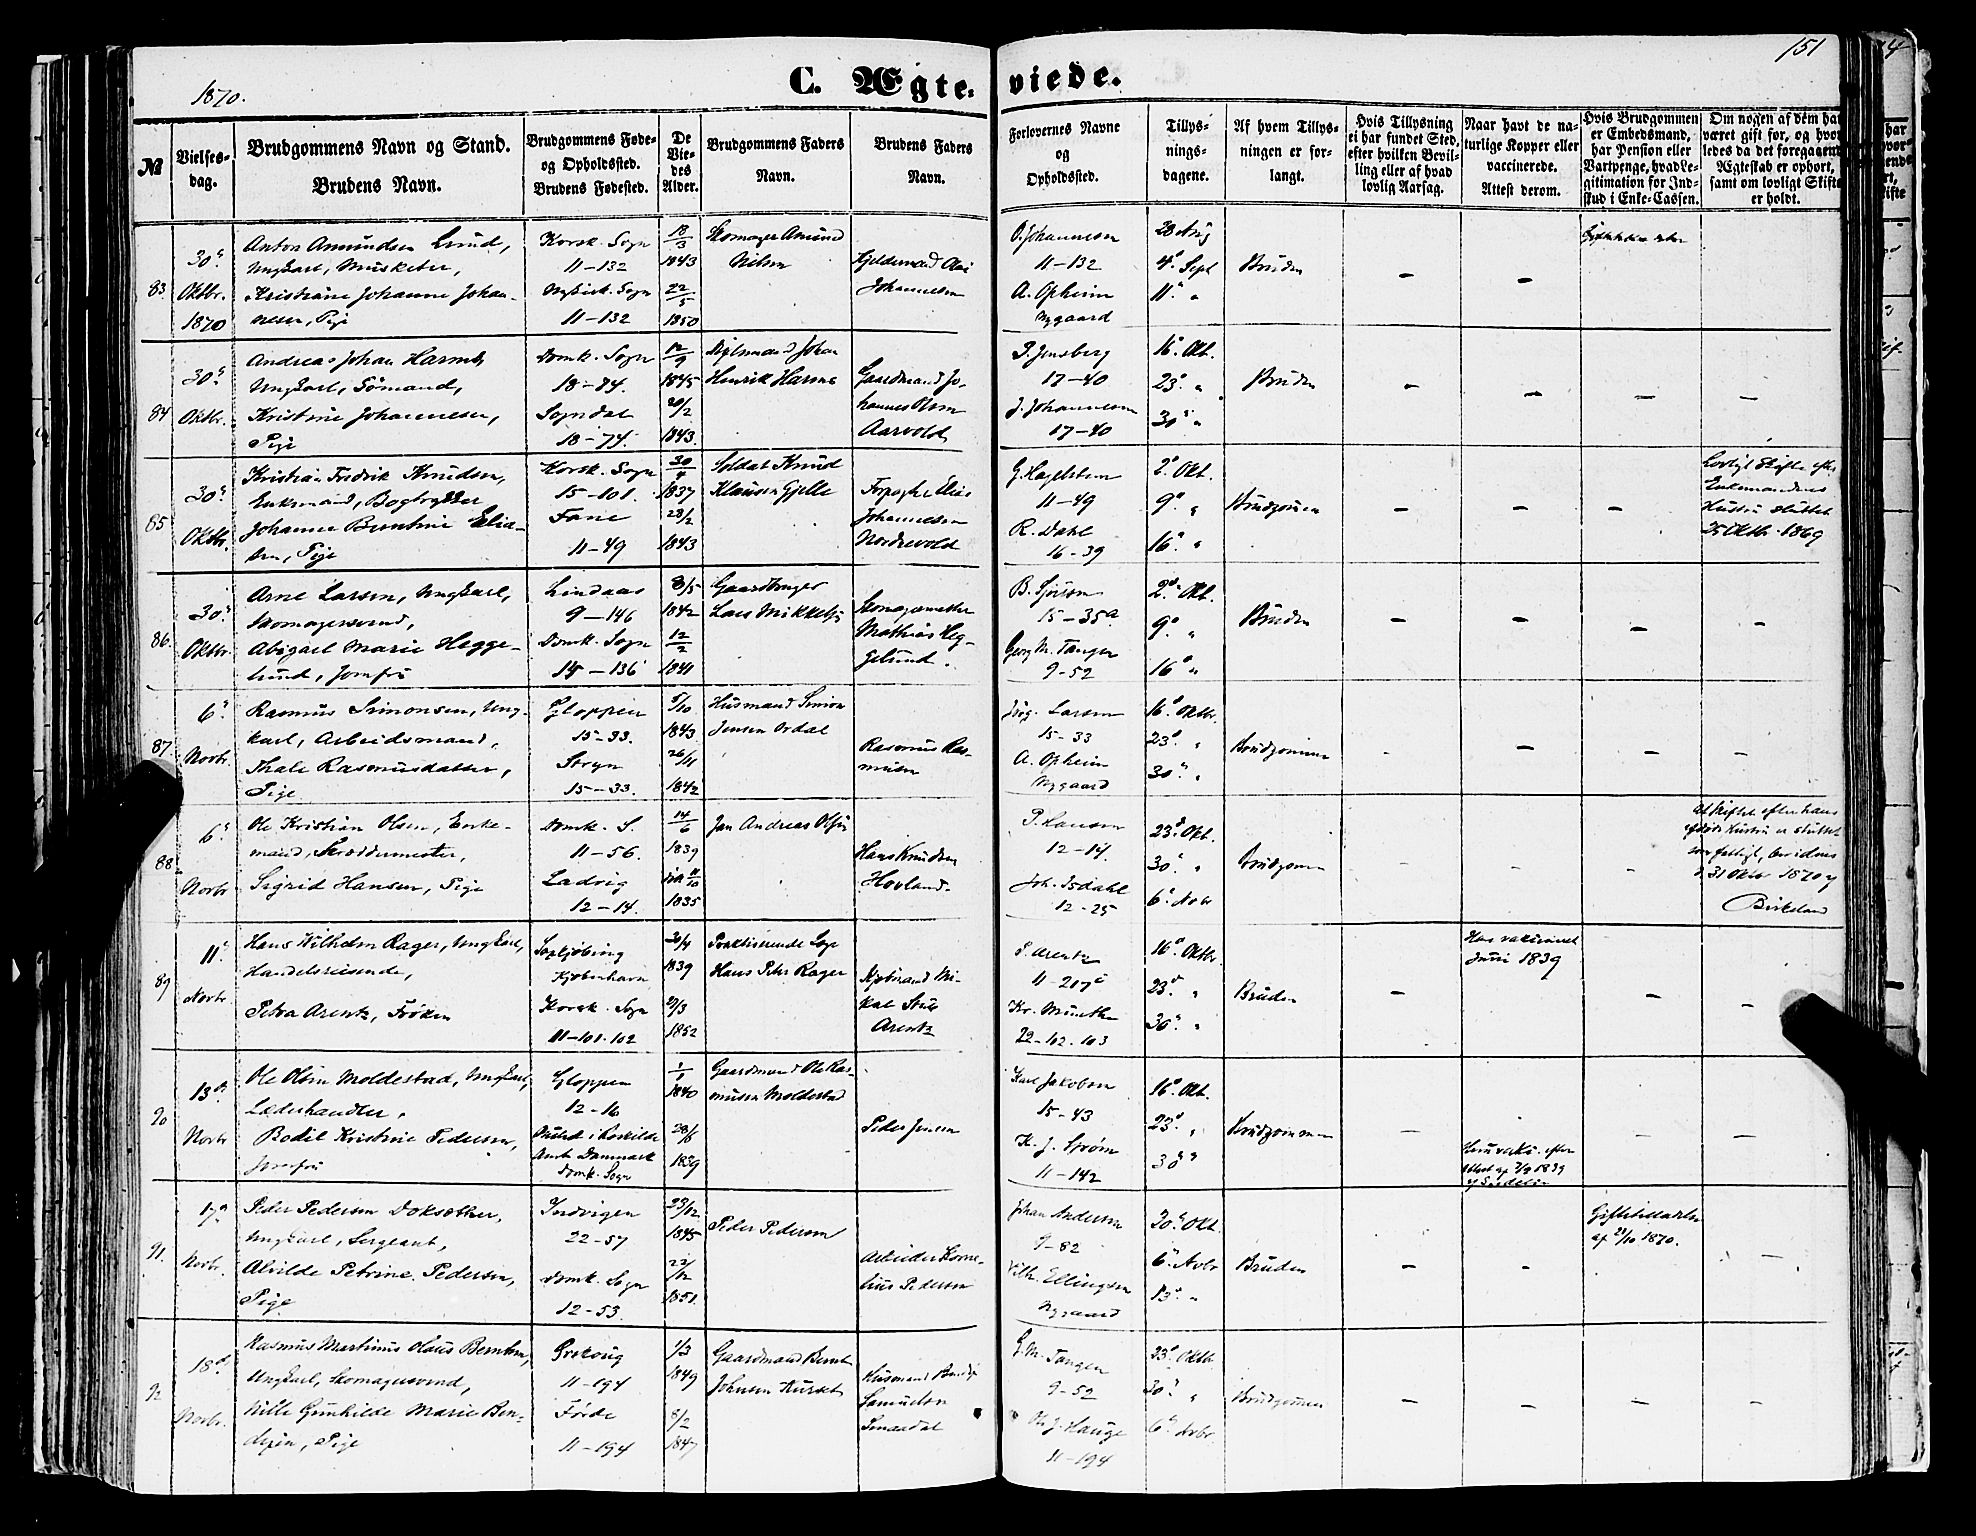 1870.
C. Ægte-
viede.
151
№
Vielses-
dag.
Brudgommens Navn og Stand.
Brudens Navn.
Brudgommens Føde-
og Opholdssted.
Brudens Fødested.
De
Vie-
des
Alder.
Brudgommens Faders
Navn.
Brudens Faders
Navn.
Forlovernes Navne
og
Opholdssted.
Tillys-
nings-
dagene.
Af hvem Tillys-
ningen er for-
langt.
Hvis Tillysning
ei har fundet Sted,
efter hvilken Bevil-
ling eller af hvad
lovlig Aarsag.
Naar havt de na-
turlige Kopper eller
vaccinerede.
Attest derom.
Hvis Brudgommen
er Embedsmand,
har Pension eller
Vartpenge, hvad Le-
gitimation for Ind-
skud i Enke-Cassen.
Om nogen af dem har
været gift før, og hvor-
ledes da det foregaaende
Ægteskab er ophørt,
samt om lovligt Skifte
er holdt.
83.
30
Oktbr.
1870
Anton Amundsen Lund,
Ungkarl, Musketer,
Kristiane Johanne Johan-
nesen, Pige
Korsk. Sogn
11-132
Nykirk. Sogn
11-132
18/3
1843
22/5
1850
Skomager Amund
Nilsen
Johannesen
O. Johannesen
11-132
A. Opheim
Nygaard
28 Aug
4 Sept
11 "
Bruden
84
30
Oktbr.
Andreas Johan Harms,
Ungkarl, Sømand,
Kristine Johannesen,
Pige
Domk. Sogn
18-74.
Sogndal
18-74.
12/9
1845
20/2
1843.
Johan
Henrik Harms
Gaardmand Jo-
hannes Olsen
Aarvold
P. Jensberg
17-40
J. Johannesen
17-40
16 Okt.
23 "
30 "
Bruden
85
30
Oktbr.
Kristian Fredrik Knudsen,
Enkemand, Bogtrykker
Johanne Berntine Elia-
sen, Pige
Korsk. Sogn
15-101.
Fane
11-49
30/4
1837
28/2
1843
Soldat Knud
Klausen Gjelle
Forpagter Elias
Johannesen
Nordrevold
G. Hagelsteen
11-49
R. Dahl
16-39
2 Okt.
9 "
16 "
Brudgommen
Lovligt Skifte efter
Enkemandens
Hustru sluttet
25 Oktbr. 1869
86.
30
Oktbr.
Arne Larsen, Ungkarl,
Skomagersvend,
Abigael Marie Hegge-
lund, Jomfru
Lindaas
9-146
Domk. Sogn
14-136
8/5
1842
12/2
1841
Gaardbruger
Lars Mikkelsen
Skomagermester
Mathias Heg-
gelund.
15-35a
Georg M. Tangen
9-52
2 Okt.
9 "
16 "
Bruden
87.
6
Novbr.
Rasmus Simonsen, Ung-
karl, Arbeidsmand,
Thale Rasmusdatter,
Pige
Gloppen
15-33.
Stryn
15-33.
5/10
1843
26/11
1842
Husmand Simon
Jensen Ordal
Rasmus Ras-
musen
Larsen
15-33
A. Opheim
Nygaard
16 Oktbr.
23 "
30 "
Brudgommen
88.
6
Novbr
Ole Kristian Olsen, Enke-
mand, Skreddermester,
Sigrid Hansen, Pige
Domk. S.
11-56.
Ladvig
12-14.
14/6
1839
1835
Jan Andreas Olsen
Hans Knudsen
Hovland.
P. Hansen
12-14.
Joh. Isdahl
12-25
23 Okt.
30 "
6 Novbr
Brudgommen
At Skiftet efter hans
afdøde Hustru er sluttet
som fattigt, bevidnes
d. 31 Oktbr 1870 af
Birkeland
89
11
Novbr
Hans Wilhelm Rager, Ungkarl,
Handelsreisende,
Petra Arentz, Frøken
Kjøbenhavn
Korsk. Sogn
11-101-102
30/4
1839
1852
Praktiserende Læge
Hans Peter Rager
Arentz
P. Arentz
11-217c
Kr. Munthe
22-102-103
16 Oktbr.
23 "
30 "
Bruden
Han vakcineret
Juni 1839
90
13
Novbr
Ole Olsen Moldestad, Ungkarl,
Læderhandler.
Bodil Kristine Pedersen,
Jomfru
Gloppen
12-16
Amt Danmark
Domk. Sogn
1/1
1840
28/6
1839
Gaardmand Ole Ras-
musen Moldestad
Peder Jensen
Karl Jakobsen
15-43
K. J. Strøm
11-142
16 Okt.
23 "
30 "
Brudgommen
91.
17
Novbr.
Peder Pedersen Doksæther,
Ungkarl, Sergeant,
Alvilde Petrine Pedersen,
Pige
Indvigen
22-57
Domk. Sogn
12-53.
23/12
1845
22/12
1851
Peder Pedersen
Arbeider Korne-
lius Pedersen
Johan Andersen
9-82
Vilh. Ellingsen
Nygaard
30 Okt.
6 Novbr
13 "
Bruden
Giftetilladelse
af 21/10 1870.
92
18
Novbr.
Rasmus Martinus Olaus Berntsen,
Ungkarl, Skomagersvend,
Nille Gunhilde Marie Ben-
dixen, Pige
Ørskoug
11-194
Førde
11-194
1/3
1849
8/2
1847
Gaardmand Bernt
Johnsen Hurset
Husmand
Samuelsen
G. M. Tangen
9-52
Ole J. Hauge
11-194
23 Oktbr
30 "
6 Novbr.
Brudgommen